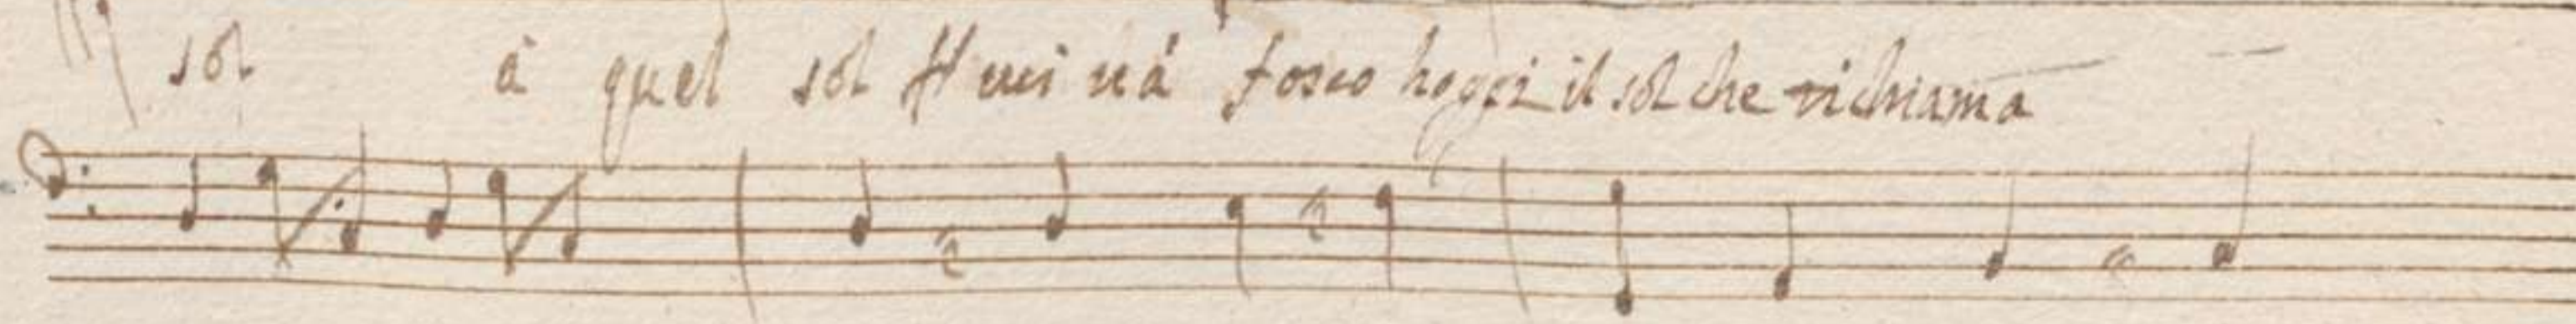 sol à quel sol H vvi và fosco hoggi il sol che vi chiama